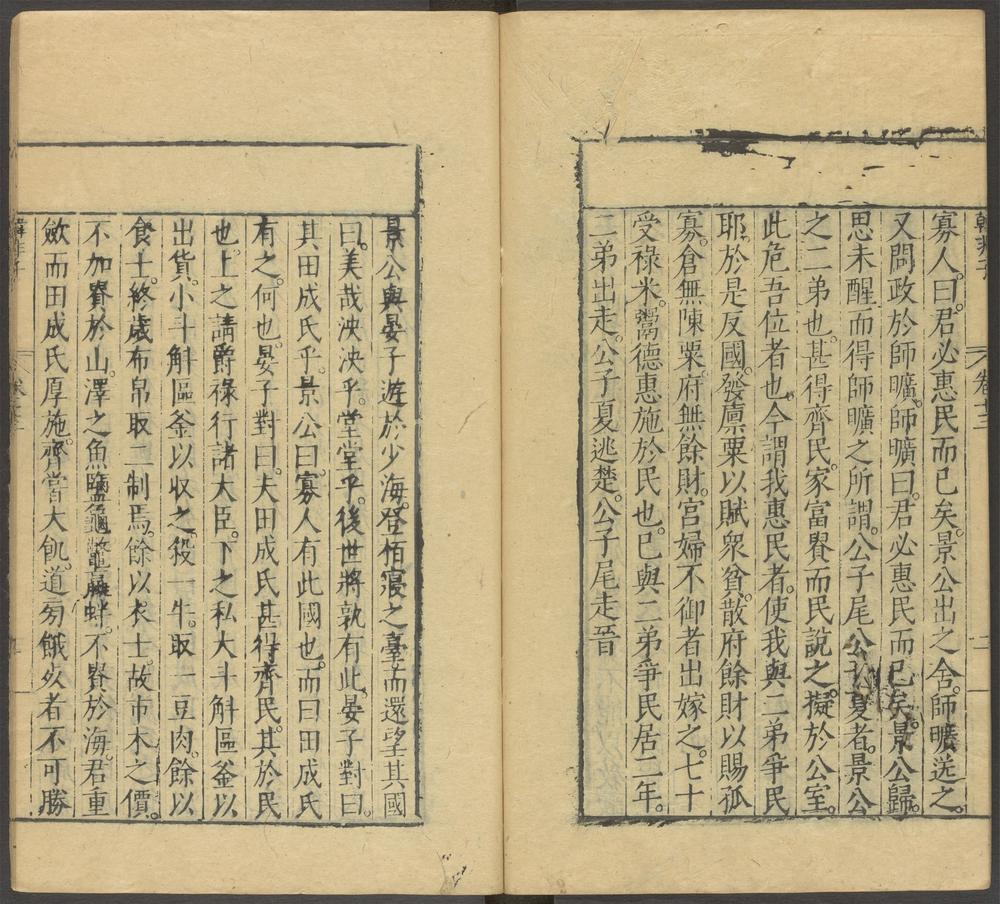 韓非子 卷十三
寡人。曰。君必惠民而已矣。景公出之舍。師曠送之。
又問政於師曠。師曠曰。君必惠民而已矣。景公歸。
思未醒。而得師曠之所謂。公子尾公子夏者。景公
之二弟也。甚得齊民。家富貴而民說之。擬於公室。
此危吾位者也。今謂我惠民者。使我與二弟爭民
耶。於是反國。發廩粟以賦衆貧。散府餘財以賜孤
寡。倉無陳粟。府無餘財。宮婦不御者出嫁之。七十
受祿米。鬻德惠施於民也。已與二弟爭民居二年。
二弟出走。公子夏逃楚。公子尾走晉
景公與晏子遊於少海。登栢寢之臺而還望其國
曰。美哉泱泱乎。堂堂乎。後世將孰有此。晏子對曰。
其田成氏乎。景公曰。寡人有此國也。而曰田成氏
有之。何也。晏子對曰。夫田成氏甚得齊民。其於民
也。上之請爵祿行諸大臣。下之私大斗斛區釜以
出貨。小斗斛區釜以収之。殺一牛。取一豆肉。餘以
食士。終歲布帛取二制焉。餘以衣士。故市木之價。
不加貴於山。澤之魚鹽龜鼈蠃蚌。不貴於海。君重
歛而田成氏厚施。齊嘗大飢。道旁餓死者不可勝